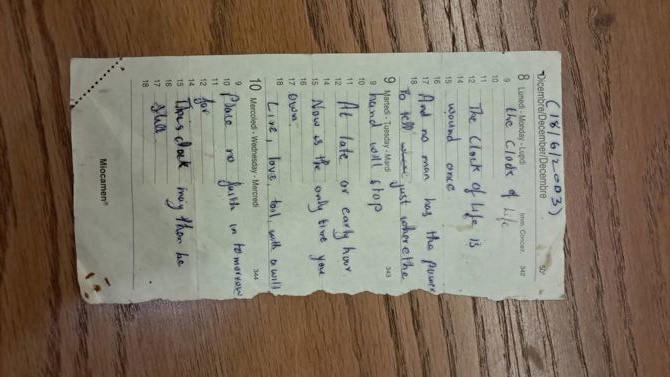 (18/6/2003)
Dicembre/December/Décembre 50
8 Lunedì - Monday - Lundi Imm. Concez. 342
9 the Clock of Life
10
11
12 The Clock of Life is
14
15 wound once
16
17 And no man has the power
18 To tell just where the
9 Martedì - Tuesday - Mardi 343
9 hand will stop
10
11 At late or early hour
12
14
15 Now is the only time you
16
17 own
18 Live, love, toil, with a will
10 Mercoledì - Wednesday - Mercredi 344
9
10 Place no faith in tomorrow
11
12 for
14
15 This clock may then be
16
17 still
18
Miocamen®